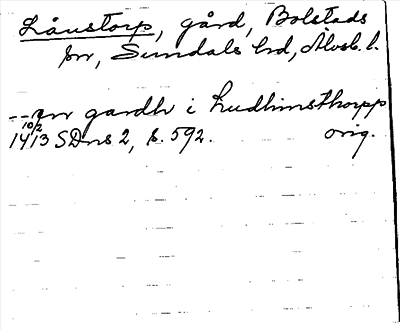 Låustorp, gård, Bolstads
sn, Sundals hd, Älvsb. l.
-- en gardh i Ludhinsthorpp
10/2
1413 SDns 2, s. 592. orig.